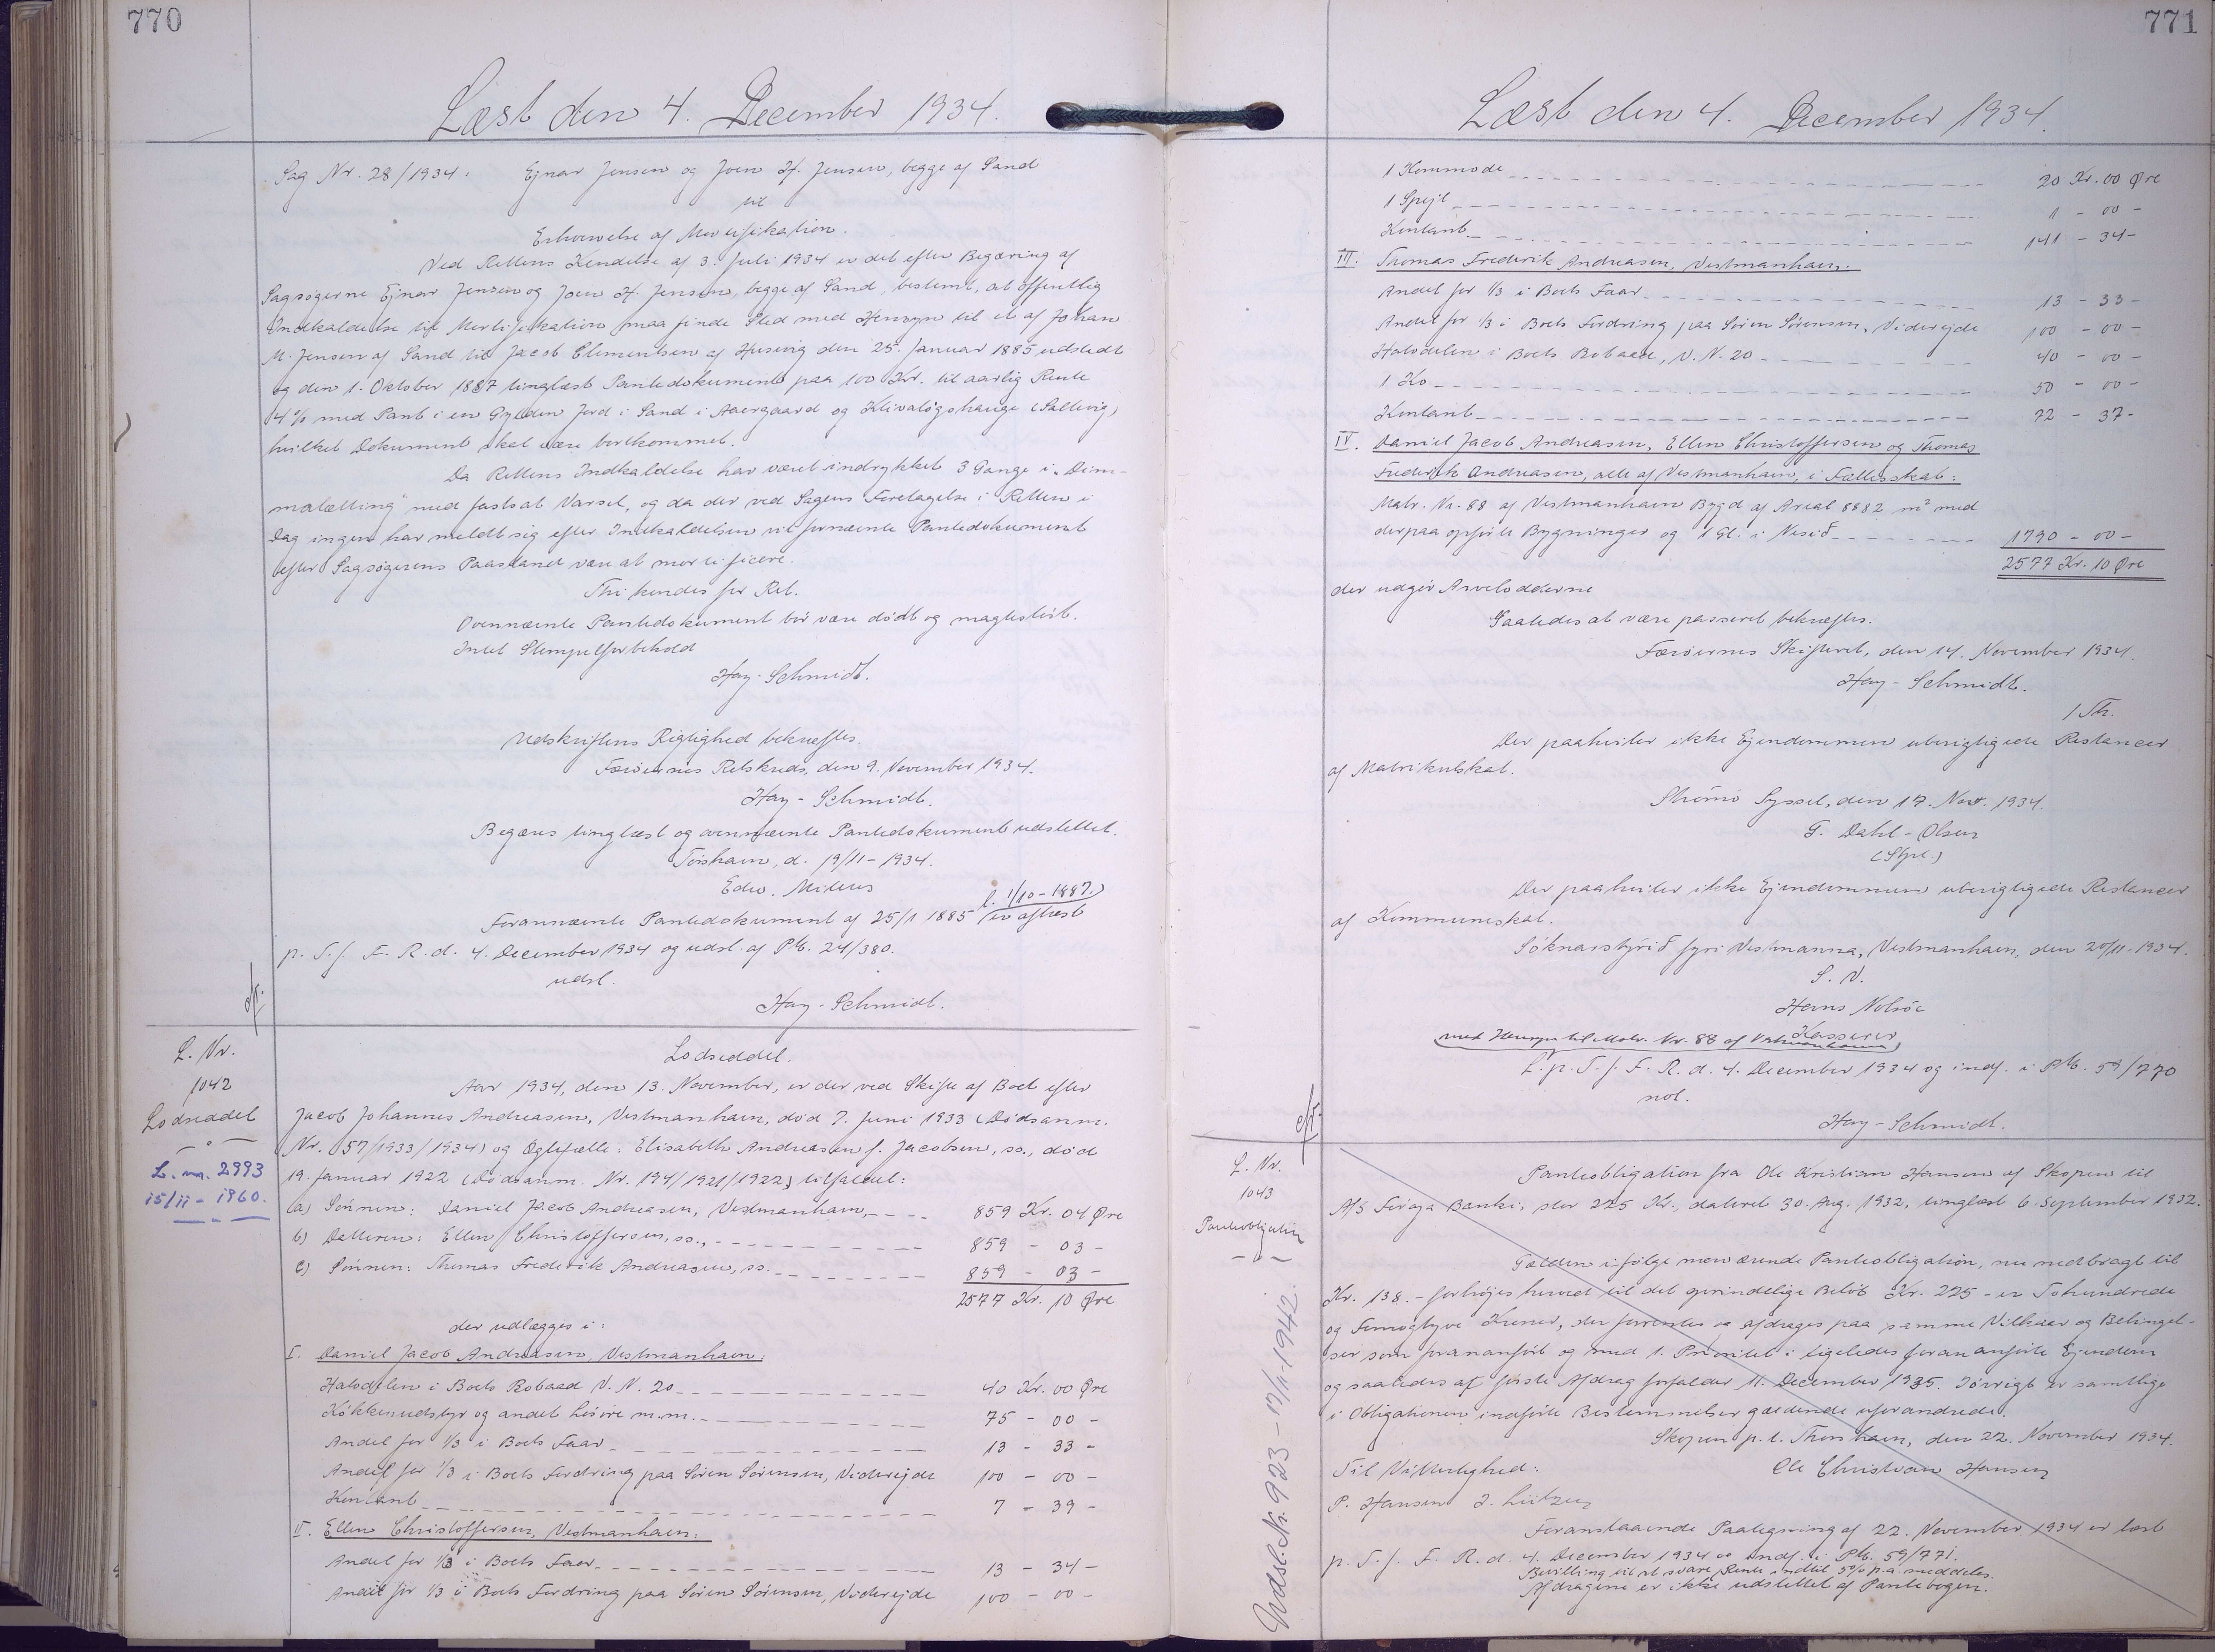 770
Læst den 4. December 1934.
Sag Nr. 28/1934: Ejnar Jensen og Joen H. Jensen, begge af Sand
til
Erhvervelse af Mortifikation.
Ved Rettens Kendelse af 3. Juli 1934 er det efter Begæring af
Sagsøgerne Ejnar Jensen og Joen H. Jensen, begge af Sand, bestemt, at offentlig
Indkaldelse til Mortifikation maa finde Sted med Hensyn til et af Johan
M. Jensen af Sand til Jacob Clementsen af Husevig den 25. Januar 1885 udstedt
og den 1. Oktober 1887 tinglæst Pantedokument paa 100 Kr. til aarlig Rente
4% med Pant i en Gylden Jord i Sand i Aaergaard og Klivaløgshauge (Saltvig)
hvilket Dokument skal være bortkommet.
Da Rettens Indkaldelse har været indrykket 3 Gange i "Dim-
malætting" med fastsat Varsel, og da der ved Sagens Foretagelse i Retten i
Dag ingen har meldt sig efter Indkaldelsen vil fornævnte Pantedokument
efter Sagsøgerens Paastand være at mortificere.
Thi kendes for Ret.
Ovennævnte Pantedokument bør være dødt og magtesløst.
Intet Stempelforbehold
Hay-Schmidt.
Udskriftens Rigtighed bekræftes.
Færøernes Retskreds, den 9. November 1934.
Hay-Schmidt.
Begæres tinglæst og ovennævnte Pantedokument udslettet.
Tórshavn, d. 19/11-1934.
Edw. Mitens
l. 1/10-1887.)
Forannævnte Pantedokument af 25/1 1885 er aflæst
p. T. f. F. R. d. 4. December 1934 og udsl. af Pb. 24/380.
udsl.
Hay-Schmidt.
L. Nr.
1042
Lodseddel
L. nr. 2993
15/11-1960.
Lodseddel.
Aar 1934, den 13. November, er der ved Skifte af Boet efter
Jacob Johannes Andreasen, Vestmanhavn, død 7. Juni 1933 (Dødsanm.
Nr. 57/1933/1934) og Ægtefælle: Elisabeth Andreasen f. Jacobsen, ss., død
19. Januar 1922 (Dødsanm. Nr. 194/1921/1922) tilfaldet:
a) Sønnen: Daniel Jacob Andreasen, Vestmanhavn, 859 Kr. 04 Øre
b) Datteren: Ellen Christoffersen, ss., 859 - 03 -
c) Sønnen: Thomas Frederik Andreasen, ss. 859 - 03 -
2577 Kr. 10 Øre
der udlægges i:
I. Daniel Jacob Andreasen, Vestmanhavn:
Halvdelen i Boets Robaad V. N. 20 40 Kr. 00 Øre
Køkkenudstyr og andet Løsøre m.m. 75 - 00 -
Andel for 1/3 i Boets Faar 13 - 33 -
Andel for 1/3 i Boets Fordring paa Søren Sørensen, Viderejde 100 - 00 -
Kontant 7 - 39 -
II. Ellen Christoffersen, Vestmanhavn:
Andel for 1/3 i Boets Faar 13 - 34 -
Andel for 1/3 i Boets Fordring paa Søren Sørensen, Viderejde 100 - 00 -
771
Læst den 4. December 1934.
1 Kommode 20 Kr. 00 Øre
1 Spejl 1 - 00 -
Kontant 141 - 34 -
III. Thomas Frederik Andreasen, Vestmanhavn:
Andel for 1/3 i Boets Faar 13 - 33 -
Andel for 1/3 i Boets Fordring paa Søren Sørensen, Viderejde 100 - 00 -
Halvdelen i Boets Robaad, V. N. 20 40 - 00 -
1 Ko 50 - 00 -
Kontant 72 - 37 -
IV. Daniel Jacob Andreasen, Ellen Christoffersen og Thomas
Frederik Andreasen, alle af Vestmanhavn, i Fællesskab:
Matr. Nr. 88 af Vestmanhavn Bygd af Areal 8882 m² med
derpaa opførte Bygninger og 1 Gl. i Nesið 1790 - 00 -
2577 Kr. 10 Øre
der udgør Arvelodderne
Saaledes at være passeret bekræftes.
Færøernes Skifteret, den 14. November 1934.
Hay-Schmidt.
/Th.
Der paahviler ikke Ejendommen uberigtigede Restancer
af Matrikulskat.
Strømø Syssel, den 17. Novr. 1934.
G. Dahl-Olsen
(Stpl.)
Der paahviler ikke Ejendommen uberigtigede Restancer
af Kommuneskat.
Sóknarstýrið fyri Vestmanna, Vestmanhavn, den 20/11-1934.
S. V.
Hans Nolsøe
Kasserer
(med Hensyn til Matr. Nr. 88 af Vestmanhavn)
L. p. T. f. F. R. d. 4. December 1934 og indf. i Pb. 59/770
not.
Hay-Schmidt.
L. Nr.
1043
Panteobligation
Udsl. Nr. 923 - 17/11-1942.
Panteobligation fra Ole Kristian Hansen af Skopun til
A/S Føroya Banki, stor 225 Kr., dateret 30. Aug. 1932, tinglæst 6. September 1932.
Gælden ifølge nærværende Panteobligation, nu nedbragt til
Kr. 138.- forhøjes herved til det oprindelige Beløb Kr. 225 - er Tohundrede
og Femogtyve Kroner, der forrentes og afdrages paa samme Vilkaar og Betingel-
ser som forananført og med 1. Prioritet i ligeledes forananførte Ejendom
og saaledes at første Afdrag forfalder 11. December 1935. Iøvrigt er samtlige
i Obligationen indførte Bestemmelser gældende uforandrede.
Skopun p.t. Thorshavn, den 22. November 1934.
Til Vitterlighed: Ole Christian Hansen
P. Hansen J. Lützen
Foranstaaende Paategning af 22. November 1934 er læst
p. T. f. F. R. d. 4. December 1934 og indf. i Pb. 59/771.
Bevilling til at svare Rente indtil 5% p.a. meddeles.
Afdragene er ikke udslettet af Pantebogen.